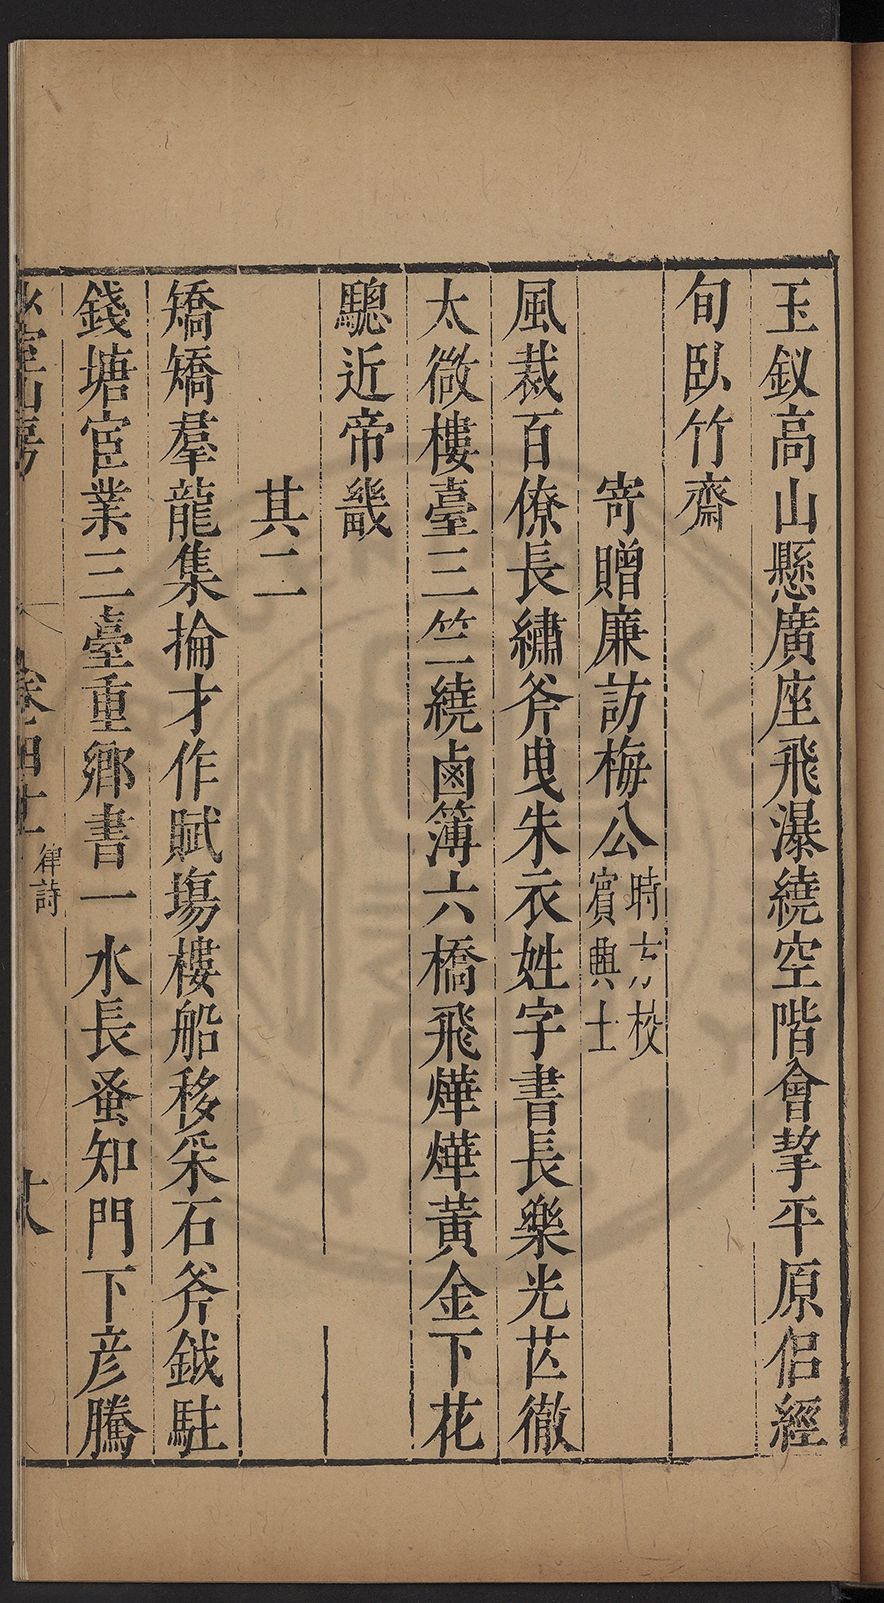 玉釵高山懸廣座飛瀑繞空階會挈平原侶經
旬臥竹齋
寄贈廉訪梅公時方校賓興士
風裁百僚長繡斧曳朱衣姓字書長樂光芒徹
太微樓臺三竺繞鹵簿六橋飛燁燁黃金下花
驄近帝畿
其二
矯矯羣龍集掄才作賦塲樓船移采石斧鉞駐
錢塘宦業三臺重鄉書一水長蚤知門下彥騰
山房
卷四十 律詩
十八